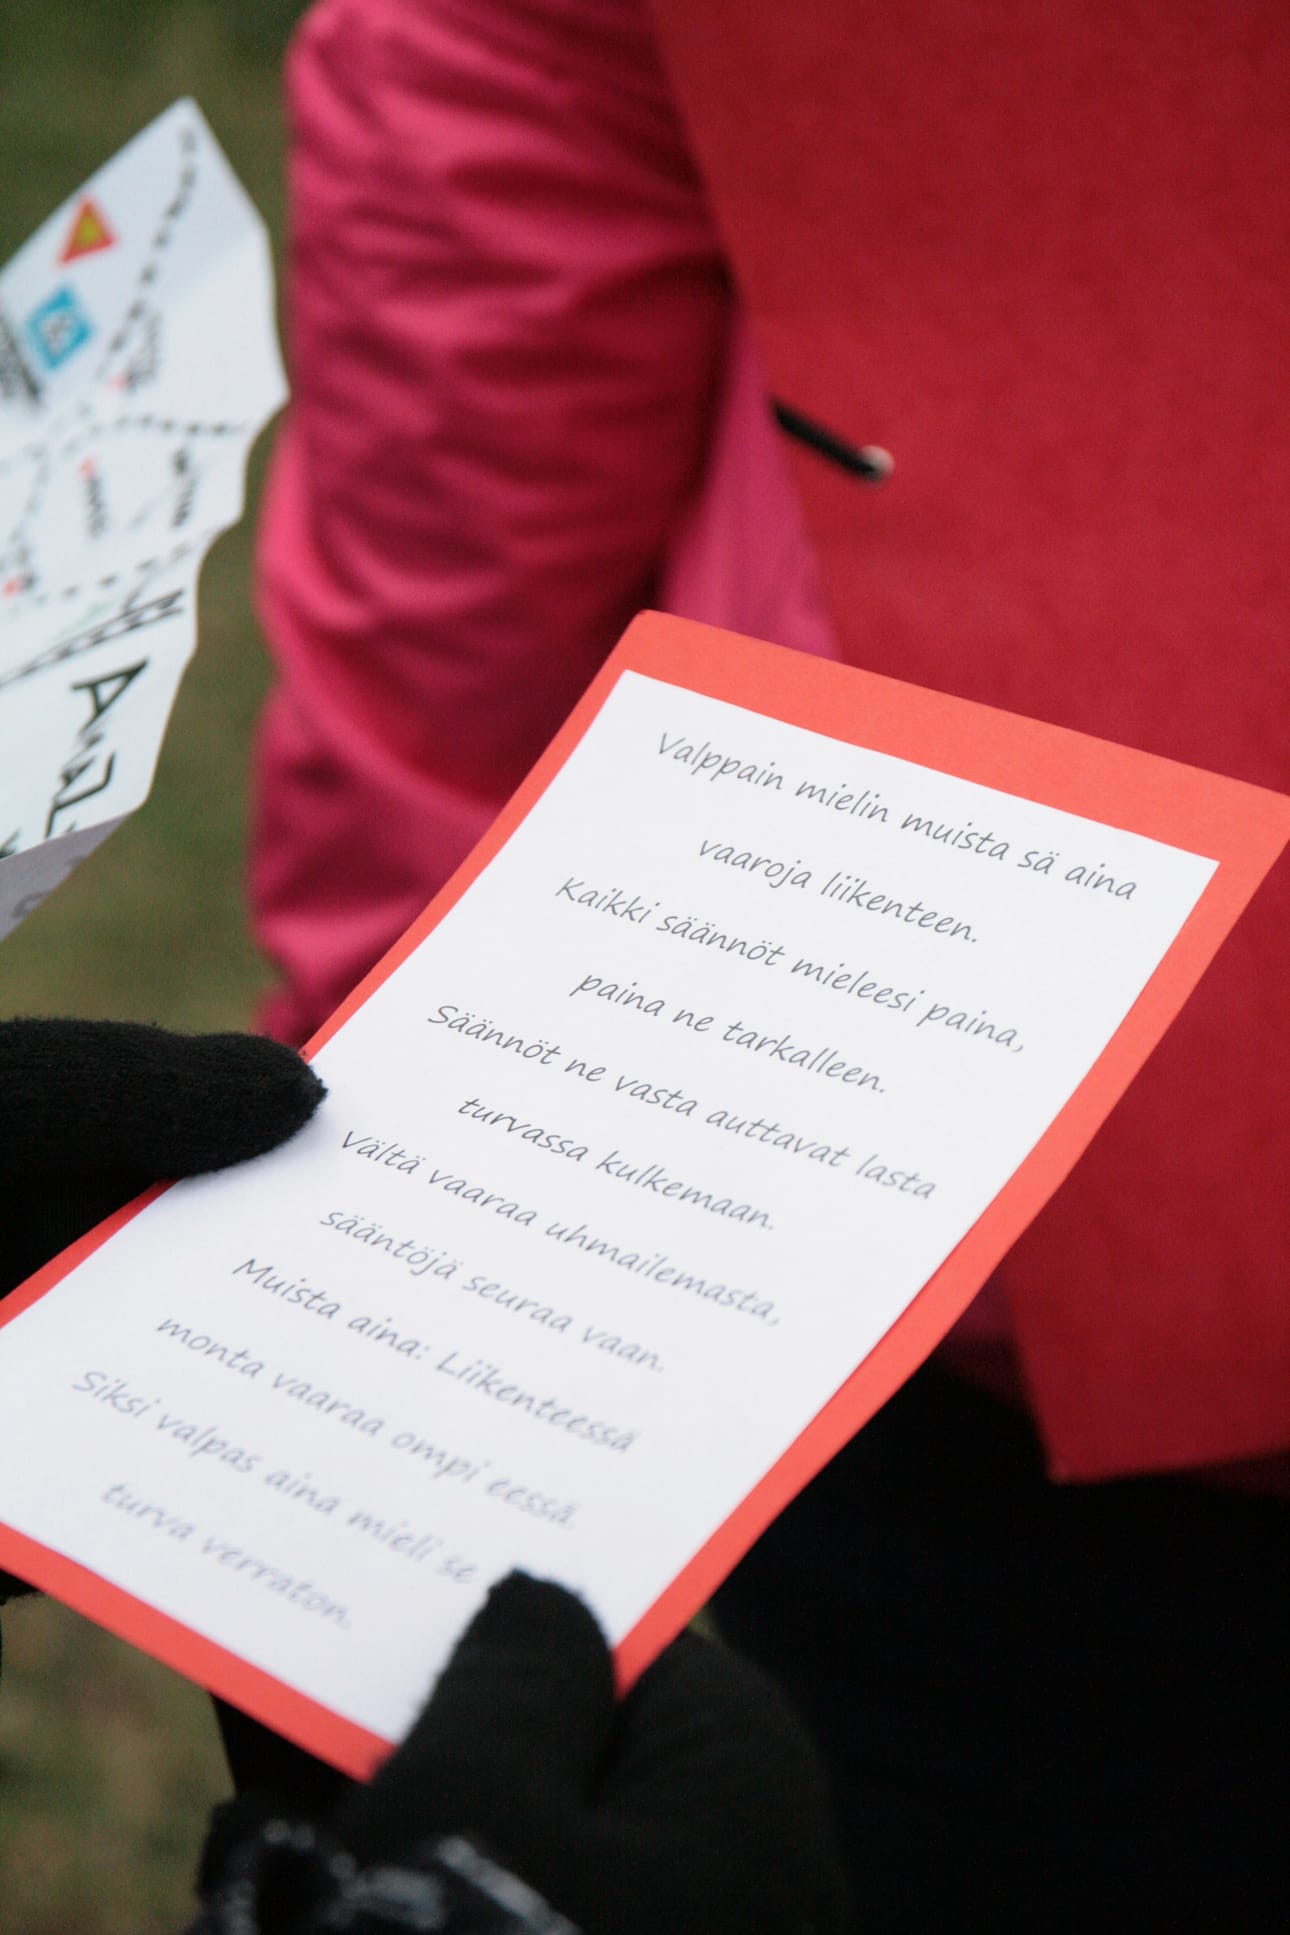 Valppain mielin muista sä aina
vaaroja liikenteen.
Kaikki säännöt mieleesi paina,
paina ne tarkalleen.
Säännöt ne vasta auttavat lasta
turvassa kulkemaan.
Vältä vaaraa uhmailemasta,
sääntöjä seuraa vaan.
Muista aina: Liikenteessä
monta vaaraa ompi eessä.
Siksi valpas aina mieli se
turva verraton.